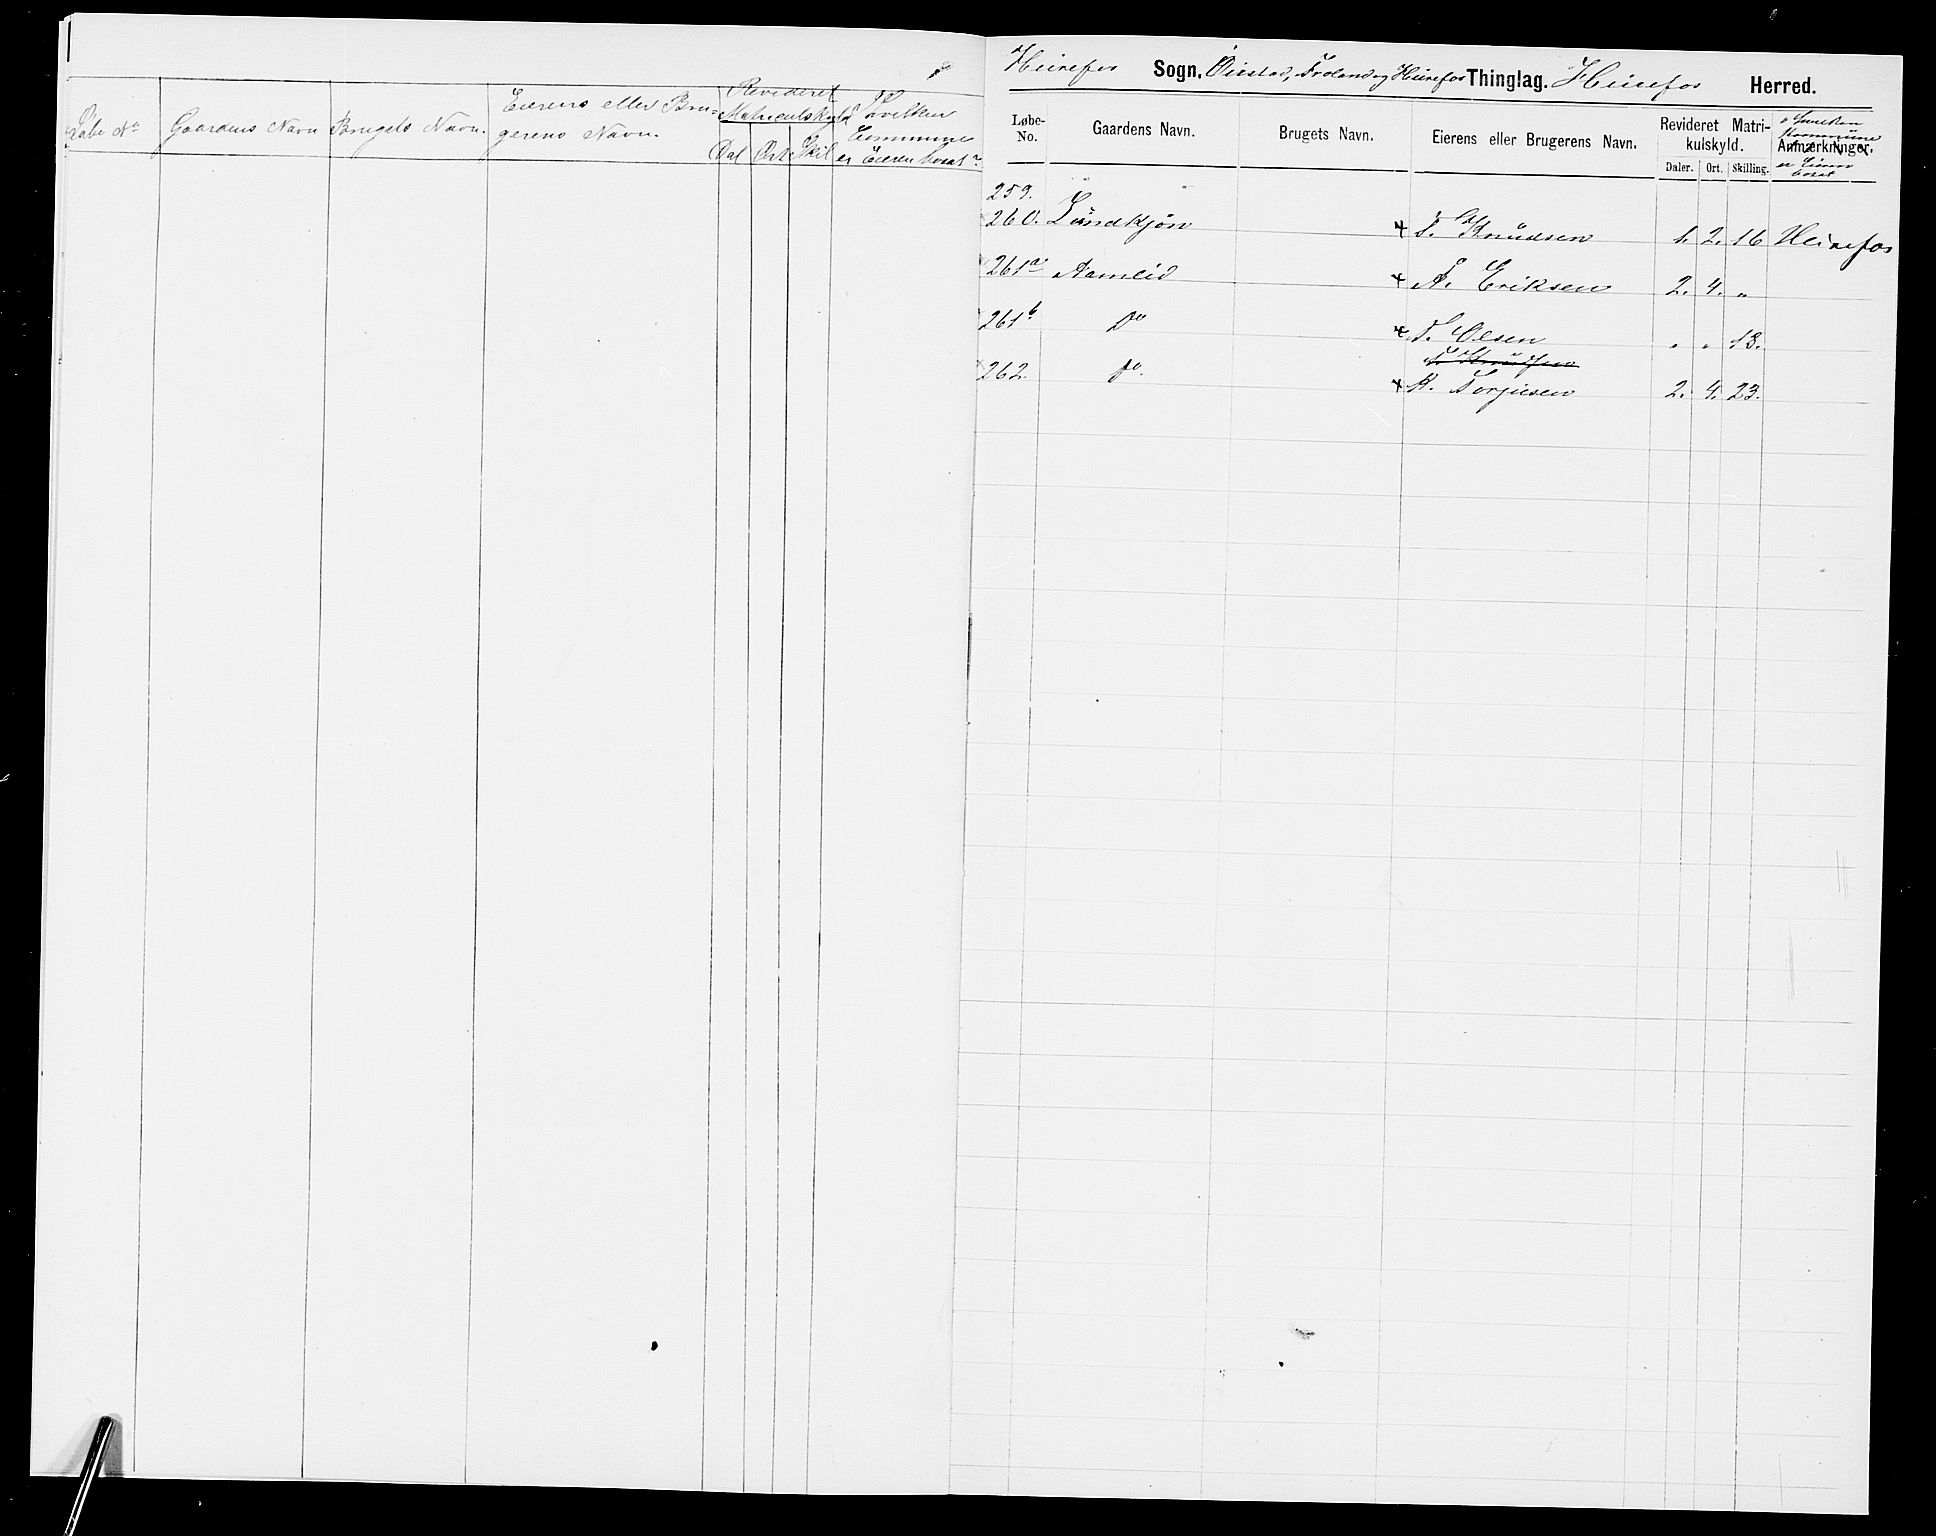 Løbe No Gaardens Navn Brugets Navn. Eierens eller Bru-
gerens Navn. Revideret
Matriculskyld
Dal Ort Skil I hvilken
Commune
er Eieren bosat?
Heirefos Sogn, Øiestad, Froland og Heirefos Thinglag. Heirefos Herred.
Løbe-
No. Gaardens Navn. Brugets Navn. Eierens eller Brugerens Navn. Revideret Matri-
kulskyld.
Daler. Ort. Skilling. i hvilken
Kommune
Anmærkninger.
er Eieren
bosat
259.
260. Landkjøn + T. Knudsen 1. 2. 16 Heirefos
261a Aamlid + A. Eriksen 2. 4. "
261b Do + T. Olsen " " 13.
262. Do. + K. Torjusen 2. 4. 23.